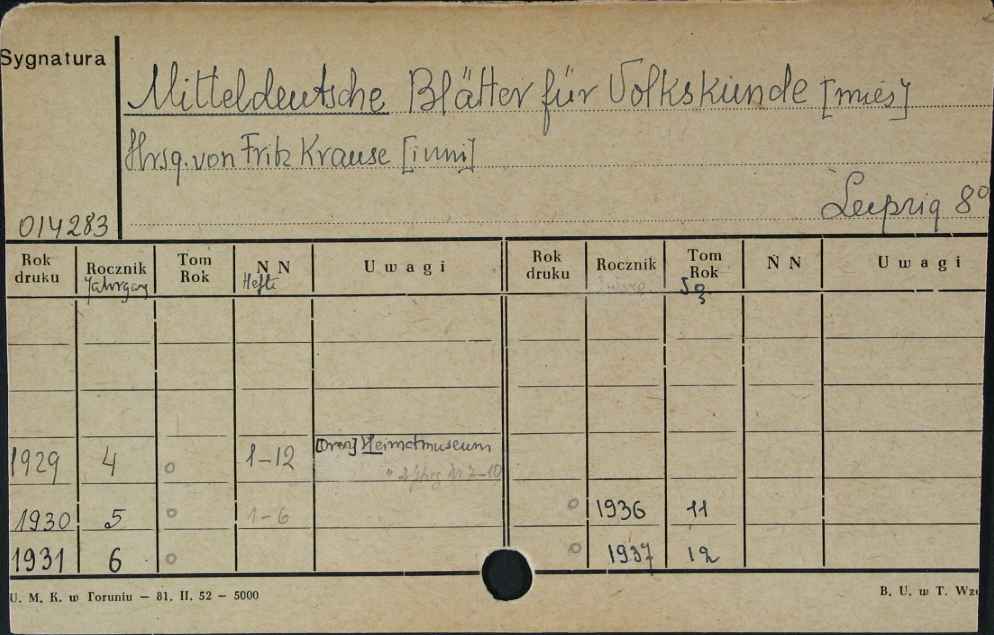 Sygnatura
Mitteldeutsche Blätter für Volkskunde [mies]
Hrsg. von Fritz Krause [i inni]
Leipzig 8°
014283
Rok druku Rocznik Tom Rok N N Uwagi Rok druku Rocznik Tom Rok N N Uwagi
Jahrgang Hefte Jg
1929 4 o 1-12 [oraz] Heimatmuseum
1930 5 o 1-6 o 1936 11
1931 6 o o 1937 12
U. M. K. w Toruniu – 81. II. 52 – 5000 B. U. w T.